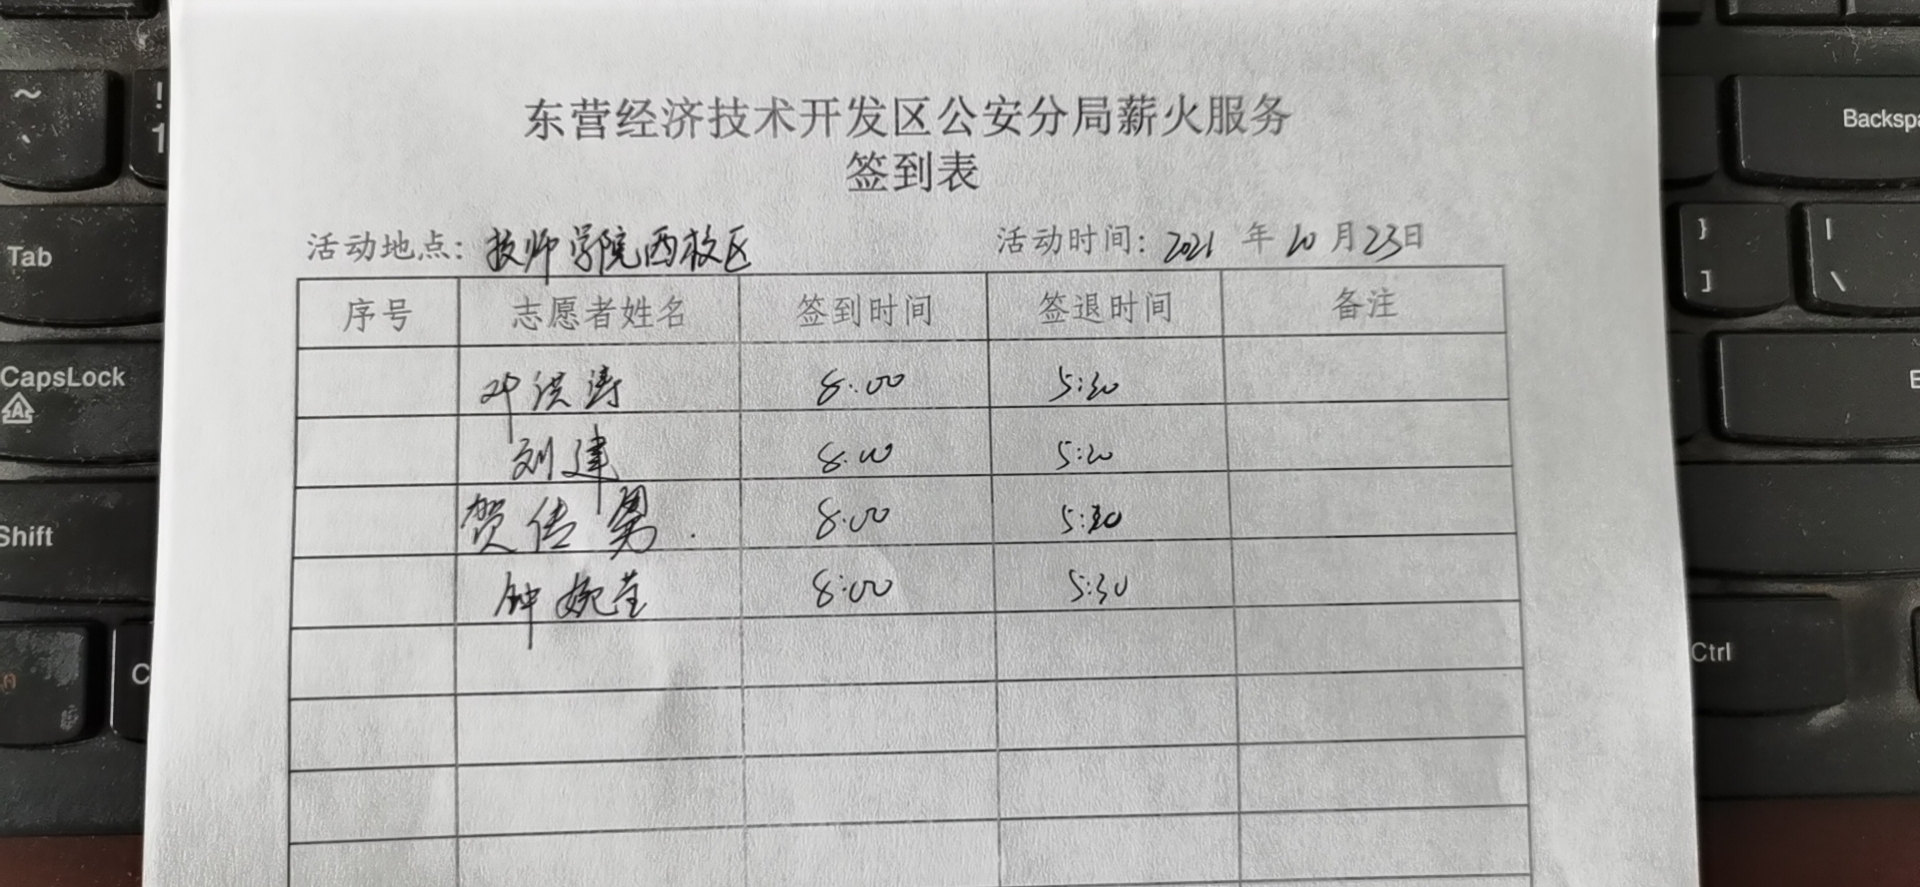 东营经济技术开发区公安分局薪火服务
签到表
活动地点：技师学院西校区 活动时间：2021 年 10 月 23 日
序号 志愿者姓名 签到时间 签退时间 备注
邓洪涛 8:00 5:30
刘建 8:00 5:20
贺传勇 8:00 5:30
钟婉莹 8:00 5:30
~
`
!
1
Tab
CapsLock
A
Shift
C
Backspa
}
]
|
\
E
Ctrl